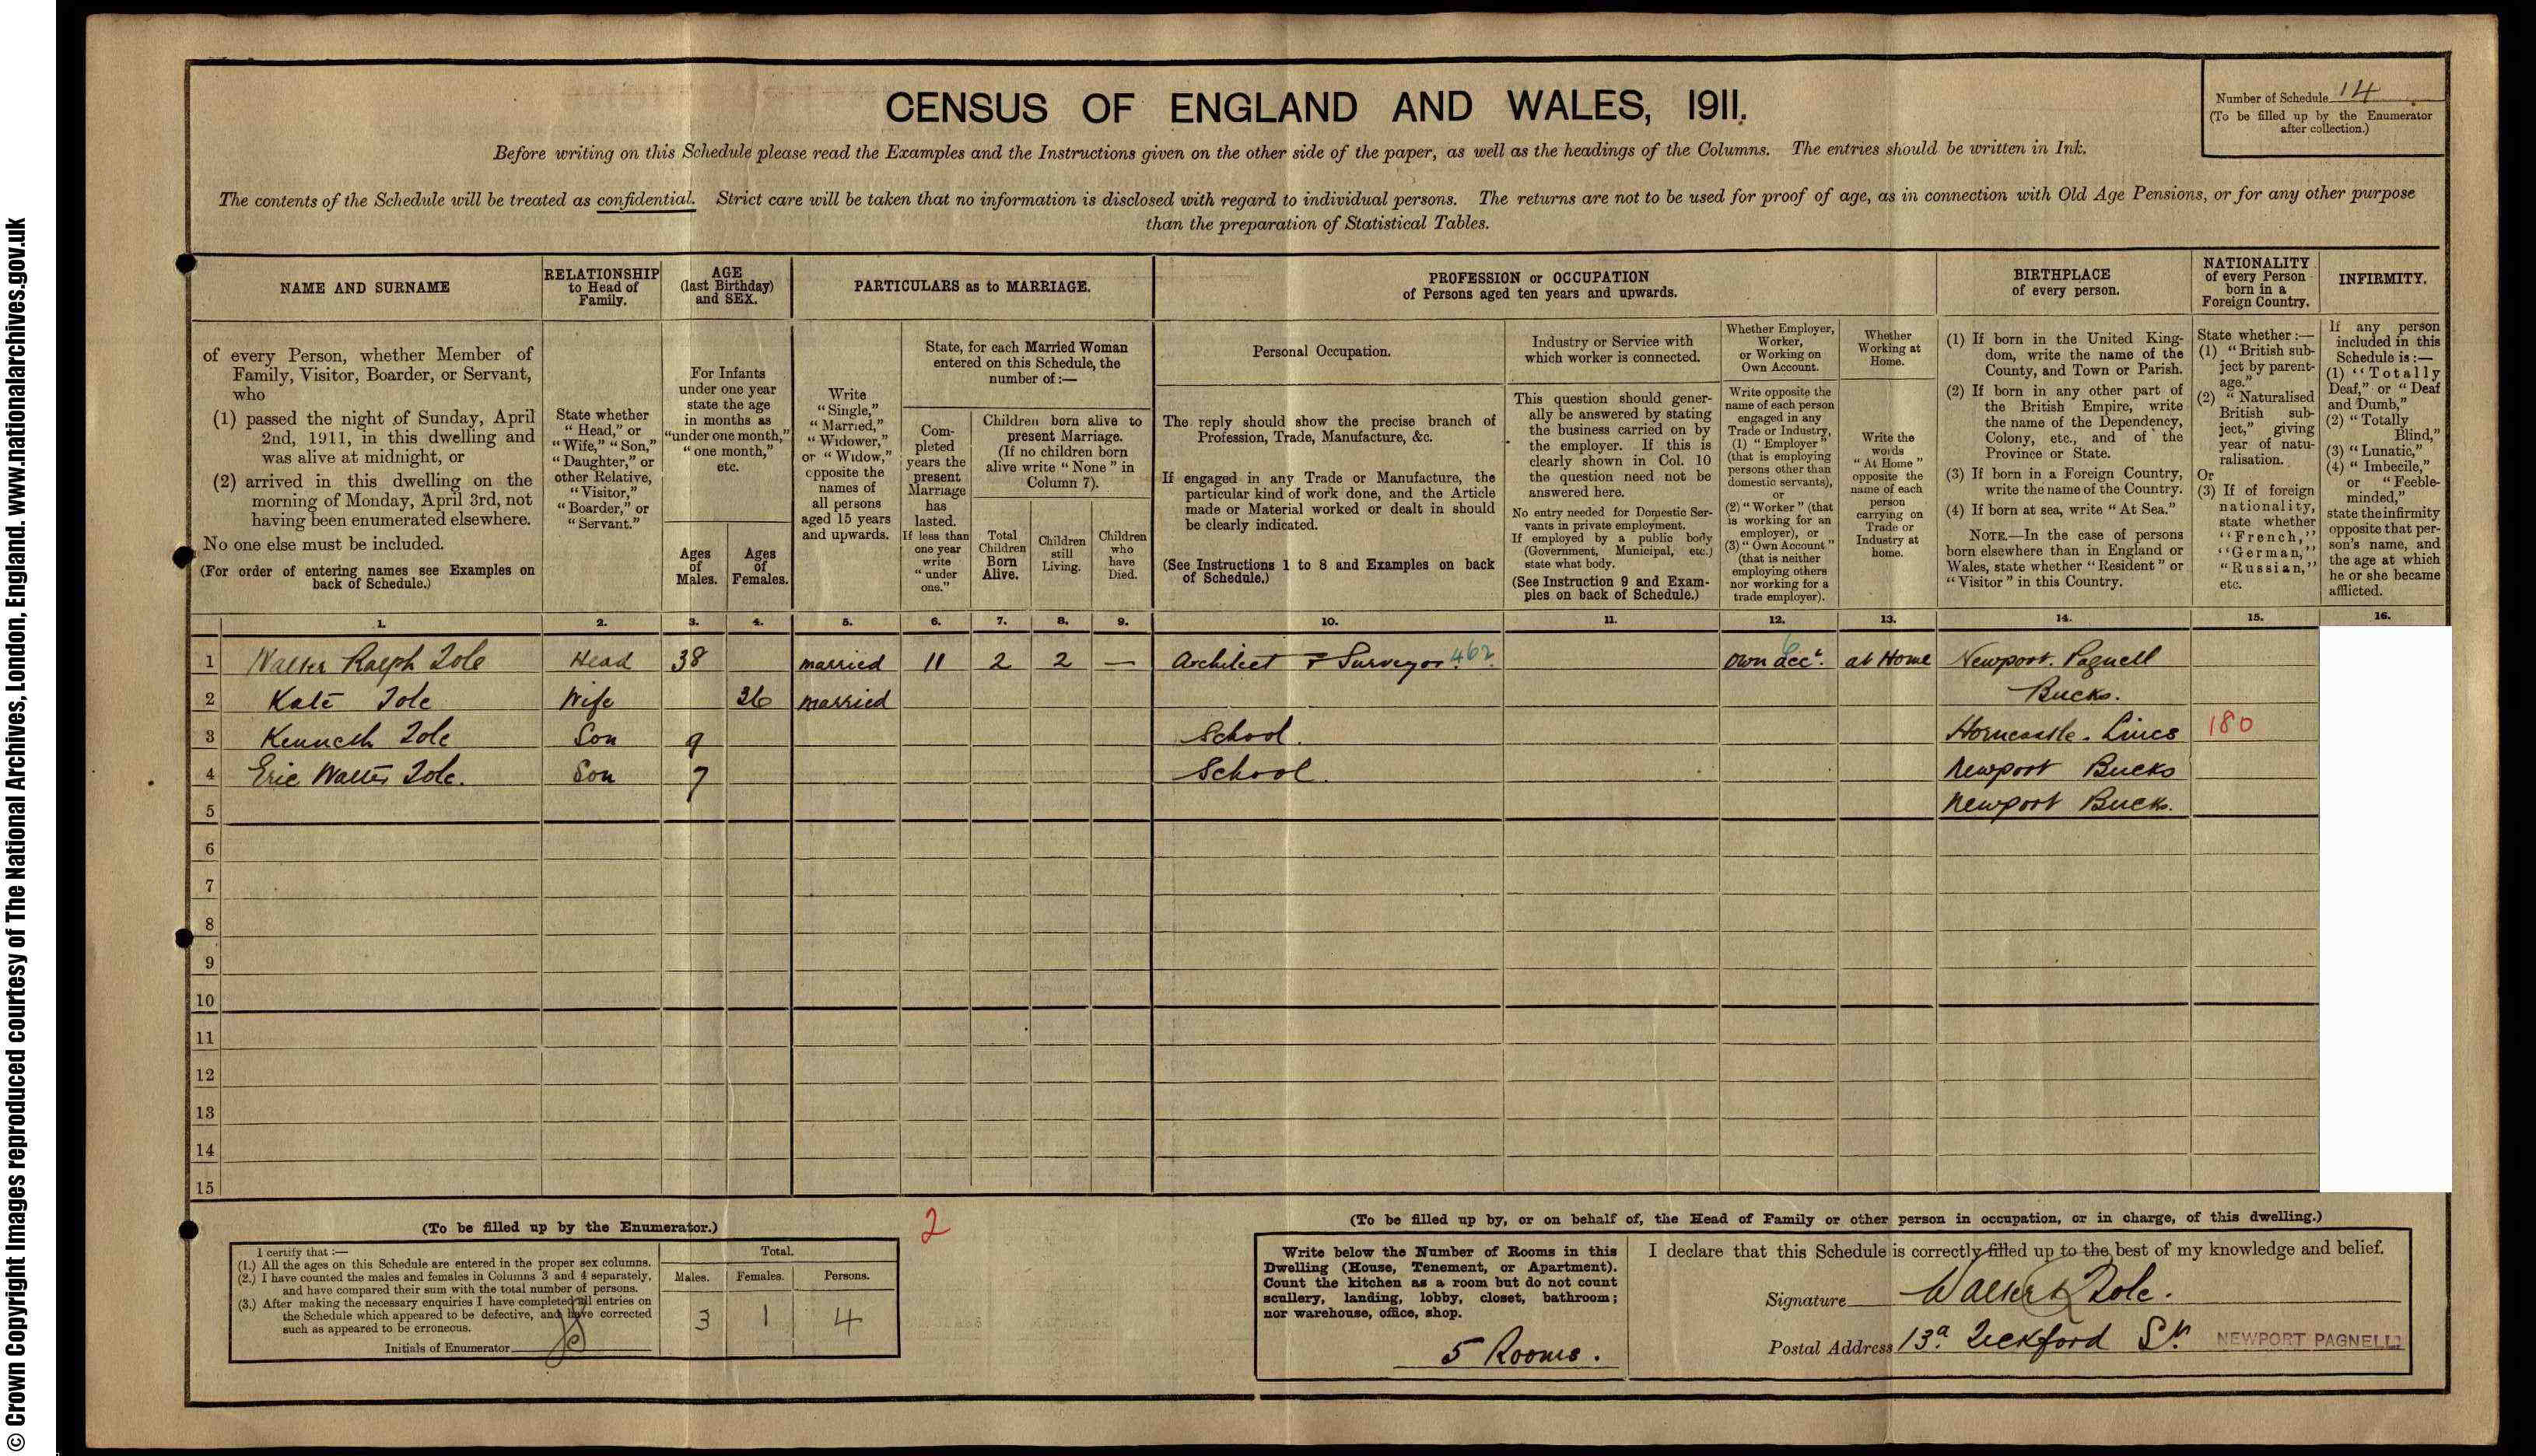 © Crown Copyright Images reproduced courtesy of The National Archives, London, England. www.nationalarchives.gov.uk
CENSUS OF ENGLAND AND WALES, 1911.
Number of Schedule 14
(To be filled up by the Enumerator
after collection.)
Before writing on this Schedule please read the Examples and the Instructions given on the other side of the paper, as well as the headings of the Columns. The entries should be written in Ink.
The contents of the Schedule will be treated as confidential. Strict care will be taken that no information is disclosed with regard to individual persons. The returns are not to be used for proof of age, as in connection with Old Age Pensions, or for any other purpose
than the preparation of Statistical Tables.
NAME AND SURNAME
of every Person, whether Member of
Family, Visitor, Boarder, or Servant,
who
(1) passed the night of Sunday, April
2nd, 1911, in this dwelling and
was alive at midnight, or
(2) arrived in this dwelling on the
morning of Monday, April 3rd, not
having been enumerated elsewhere.
No one else must be included.
(For order of entering names see Examples on
back of Schedule.)
RELATIONSHIP
to Head of
Family.
State whether
"Head," or
"Wife," "Son,"
"Daughter," or
other Relative,
"Visitor,"
"Boarder," or
"Servant."
AGE
(last Birthday)
and SEX.
For Infants
under one year
state the age
in months as
"under one month,"
"one month,"
etc.
Ages
of
Males.
Ages
of
Females.
PARTICULARS as to MARRIAGE.
Write
"Single,"
"Married,"
"Widower,"
or "Widow,"
opposite the
names of
all persons
aged 15 years
and upwards.
State, for each Married Woman
entered on this Schedule, the
number of:—
Com-
pleted
years the
present
Marriage
has
lasted.
If less than
one year
write
"under
one."
Children born alive to
present Marriage.
(If no children born
alive write "None" in
Column 7).
Total
Children
Born
Alive.
Children
still
Living.
Children
who
have
Died.
PROFESSION or OCCUPATION
of Persons aged ten years and upwards.
Personal Occupation.
The reply should show the precise branch of
Profession, Trade, Manufacture, &c.
If engaged in any Trade or Manufacture, the
particular kind of work done, and the Article
made or Material worked or dealt in should
be clearly indicated.
(See Instructions 1 to 8 and Examples on back
of Schedule.)
Industry or Service with
which worker is connected.
This question should gener-
ally be answered by stating
the business carried on by
the employer. If this is
clearly shown in Col. 10
the question need not be
answered here.
No entry needed for Domestic Ser-
vants in private employment.
If employed by a public body
(Government, Municipal, etc.)
state what body.
(See Instruction 9 and Exam-
ples on back of Schedule.)
Whether Employer,
Worker,
or Working on
Own Account.
Write opposite the
name of each person
engaged in any
Trade or Industry,
(1) "Employer"
(that is employing
persons other than
domestic servants),
or
(2) "Worker" (that
is working for an
employer), or
(3) "Own Account"
(that is neither
employing others
nor working for a
trade employer).
Whether
Working at
Home.
Write the
words
"At Home"
opposite the
name of each
person
carrying on
Trade or
Industry at
home.
BIRTHPLACE
of every person.
(1) If born in the United King-
dom, write the name of the
County, and Town or Parish.
(2) If born in any other part of
the British Empire, write
the name of the Dependency,
Colony, etc., and of the
Province or State.
(3) If born in a Foreign Country,
write the name of the Country.
(4) If born at sea, write "At Sea."
NOTE.—In the case of persons
born elsewhere than in England or
Wales, state whether "Resident" or
"Visitor" in this Country.
NATIONALITY
of every Person
born in a
Foreign Country.
State whether:—
(1) "British sub-
ject by parent-
age."
(2) "Naturalised
British sub-
ject," giving
year of natu-
ralisation.
Or
(3) If of foreign
nationality,
state whether
"French,"
"German,"
"Russian,"
etc.
INFIRMITY.
If any person
included in this
Schedule is:—
(1) "Totally
Deaf," or "Deaf
and Dumb,"
(2) "Totally
Blind,"
(3) "Lunatic,"
(4) "Imbecile,"
or "Feeble-
minded,"
state the infirmity
opposite that per-
son's name, and
the age at which
he or she became
afflicted.
1. 2. 3. 4. 5. 6. 7. 8. 9. 10. 11. 12. 13. 14. 15. 16.
1 Walter Ralph Tole Head 38 married 11 2 2 — Architect & Surveyor 462 own acct. at Home Newport Pagnell
Bucks.
2 Kate Tole Wife 36 married
3 Kenneth Tole Son 9 School. Horncastle. Lincs 180
4 Eric Walter Tole. Son 7 School. Newport Bucks
5 Newport Bucks.
6
7
8
9
10
11
12
13
14
15
2
(To be filled up by the Enumerator.)
I certify that:—
(1.) All the ages on this Schedule are entered in the proper sex columns.
(2.) I have counted the males and females in Columns 3 and 4 separately,
and have compared their sum with the total number of persons.
(3.) After making the necessary enquiries I have completed all entries on
the Schedule which appeared to be defective, and have corrected
such as appeared to be erroneous.
Initials of Enumerator
Total.
Males. Females. Persons.
3 1 4
(To be filled up by, or on behalf of, the Head of Family or other person in occupation, or in charge, of this dwelling.)
Write below the Number of Rooms in this
Dwelling (House, Tenement, or Apartment).
Count the kitchen as a room but do not count
scullery, landing, lobby, closet, bathroom;
nor warehouse, office, shop.
5 Rooms.
I declare that this Schedule is correctly filled up to the best of my knowledge and belief.
Signature Walter R Tole.
Postal Address 13a. Tickford St. NEWPORT PAGNELL